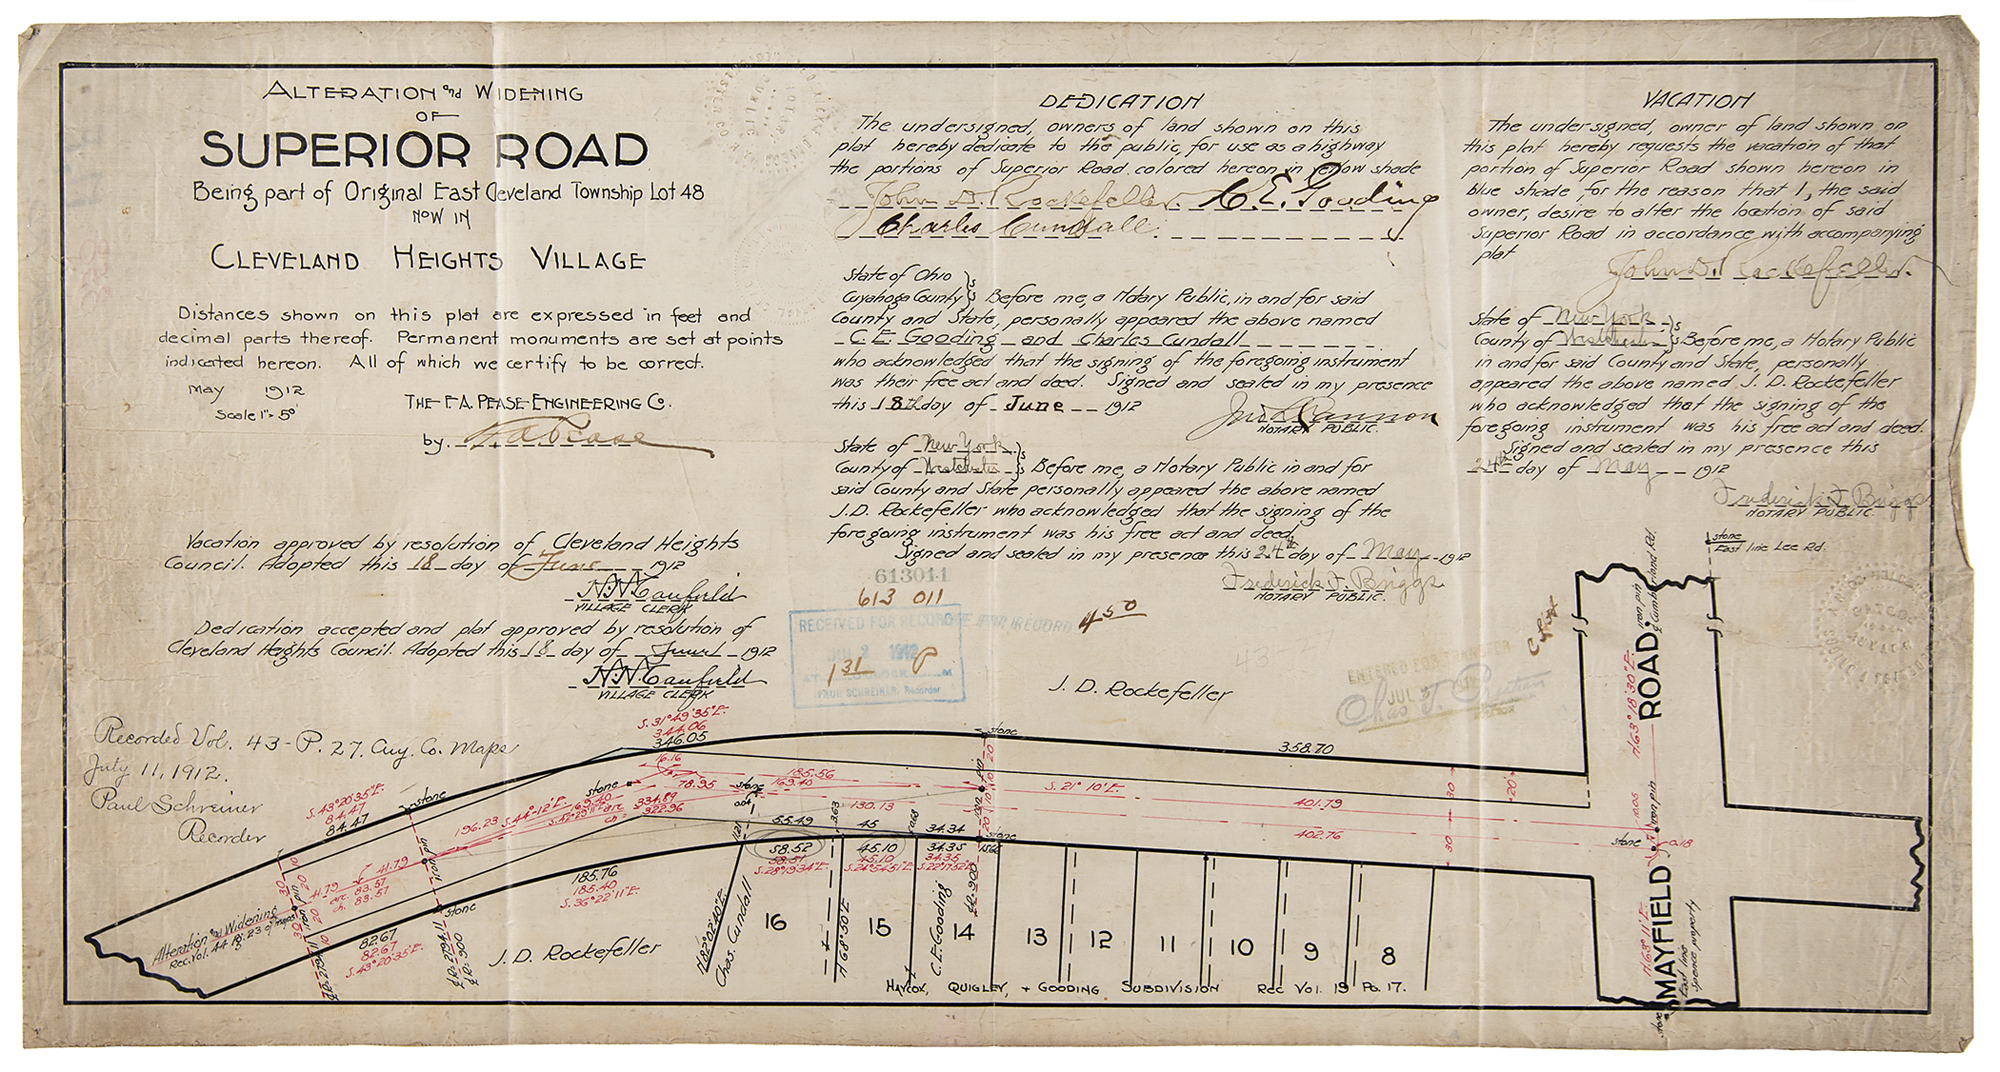 ALTERATION and WIDENING
OF
SUPERIOR ROAD
Being part of Original East Cleveland Township Lot 48
NOW IN
CLEVELAND HEIGHTS VILLAGE
Distances shown on this plat are expressed in feet and
decimal parts thereof. Permanent monuments are set at points
indicated hereon. All of which we certify to be correct.
May 1912
Scale 1"= 50'
THE F.A. PEASE ENGINEERING CO.
by. F.A. Pease
Vacation approved by resolution of Cleveland Heights
Council. Adopted this 18 day of June 1912
H.H. Canfield
VILLAGE CLERK
Dedication accepted and plat approved by resolution of
Cleveland Heights Council. Adopted this 18 day of June 1912
H.H. Canfield
VILLAGE CLERK
Recorded Vol. 43 - P. 27. Cuy. Co. Maps
July 11, 1912.
Paul Schreiner
Recorder
DEDICATION
The undersigned, owners of land shown on this
plat hereby dedicate to the public, for use as a highway
the portions of Superior Road colored hereon in yellow shade
John D. Rockefeller. C.E. Gooding
Charles Cundall.
State of Ohio
Cuyahoga County }ss Before me, a Notary Public, in and for said
County and State, personally appeared the above named
C.E. Gooding and Charles Cundall
who acknowledged that the signing of the foregoing instrument
was their free act and deed. Signed and sealed in my presence
this 18th day of June 1912
NOTARY PUBLIC.
State of New York
County of Westchester }ss Before me, a Notary Public in and for
said County and State personally appeared the above named
J.D. Rockefeller who acknowledged that the signing of the
foregoing instrument was his free act and deed.
Signed and sealed in my presence this 24th day of May 1912
Frederick F. Briggs
NOTARY PUBLIC.
613011
613 011
RECEIVED FOR RECORD
JUL 2 1912
1 31 P
PAUL SCHREINER, Recorder
4 50
ENTERED FOR TRANSFER
JUL
VACATION
The undersigned, owner of land shown on
this plat hereby requests the vacation of that
portion of Superior Road shown hereon in
blue shade, for the reason that I, the said
owner, desire to alter the location of said
Superior Road in accordance with accompanying
plat
John D. Rockefeller.
State of New York
County of Westchester }ss Before me, a Notary Public
in and for said County and State, personally
appeared the above named J. D. Rockefeller
who acknowledged that the signing of the
foregoing instrument was his free act and deed.
Signed and sealed in my presence this
24th day of May 1912
Frederick F. Briggs
NOTARY PUBLIC.
stone
East line Lee Rd.
J. D. Rockefeller
S. 31° 49' 35" E.
344.06
346.05
stone
358.70
S. 43° 20' 35" E.
84.47
84.47
stone
stone
16.16
78.95
185.56
169.40
stone
S. 21° 10' E.
401.79
402.76
30
30
20
196.23
S. 44°-12' E.
169.40
334.89
322.96
130.13
41.79
41.79
arc 83.57
ch. 83.57
iron pin
55.49
45
34.34
stone
58.52
45.10
34.35
58.51
45.10
34.35
S. 28° 19' 34" E.
185.76
185.40
S. 36° 22' 11" E.
stone
Alteration and Widening
Rec. Vol. 44 Pg. 23 of maps
82.67
82.67
S. 43° 20' 35" E.
J. D. Rockefeller
N 82° 02' 40" E.
Chas. Cundall
16
N 68° 50' E.
15
C.E. Gooding
14
13
12
11
10
9
8
HAYCOX, QUIGLEY, + GOODING SUBDIVISION REC VOL. 19 PG. 17.
MAYFIELD ROAD.
N. 63° 18' 30" E.
N. 63° 11' E.
iron pin
stone
0.18
East line
Spence property
stone